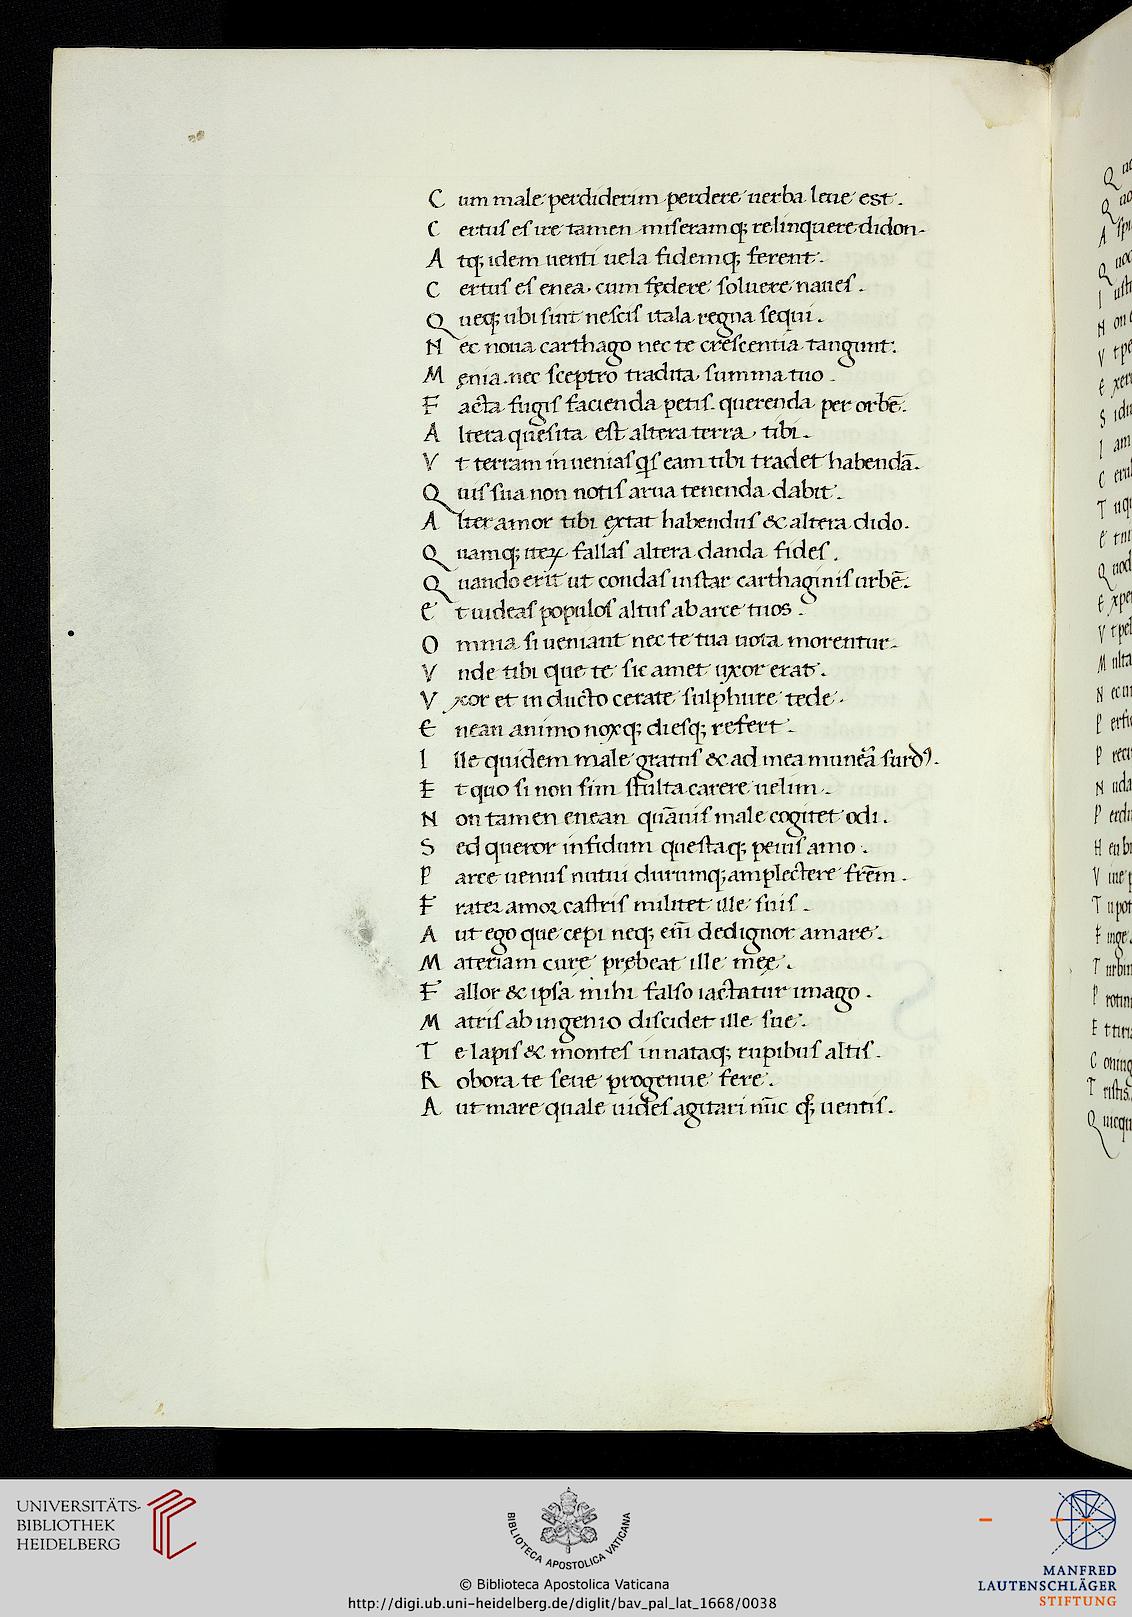 C um male perdiderim perdere uerba leue est.
C ertus es ire tamen miseramq; relinquere didon.
A tq; idem uenti uela fidemq; ferent.
C ertus es enea cum fędere soluere naues.
Q ueq; ubi sint nescis itala regna sequi.
N ec noua carthago nec te crescentia tangunt.
M ęnia. nec sceptro tradita summa tuo.
F acta fugis facienda petis. querenda per orbē.
A ltera quesita est altera terra tibi.
V t terram inuenias qis eam tibi tradet habendā.
Q uis sua non notis arua tenenda dabit.
A lter amor tibi extat habendus & altera dido.
Q uamq; iteꝝ fallas altera danda fides.
Q uando erit ut condas instar carthaginis urbē.
E t uideas populos altus ab arce tuos.
O mnia si ueniant nec te tua uota morentur.
V nde tibi que te sic amet uxor erat.
V xor et in ducto cerate sulphure tede.
E nean animo noxq; diesq; refert.
I lle quidem male gratus & ad mea munera surdꝰ.
E t quo si non sim stulta carere uelim.
N on tamen enean quāuis male cogitet odi.
S ed queror infidum questaq; peius amo.
P arce uenus nutui durumq; amplectere frēm.
F rater amor castris militet ille suis.
A ut ego que cepi neq; eīm dedignor amare.
M ateriam curę prębeat ille męę.
F allor & ipsa mihi falso iactatur imago.
M atris ab ingenio discidet ille suę.
T e lapis & montes innataq; rupibus altis.
R obora te seue progenue fere.
A ut mare quale uides agitari nūc qꝫ uentis.
UNIVERSITÄTS-
BIBLIOTHEK
HEIDELBERG
BIBLIOTECA APOSTOLICA VATICANA
MANFRED
LAUTENSCHLÄGER
STIFTUNG
© Biblioteca Apostolica Vaticana
http://digi.ub.uni-heidelberg.de/diglit/bav_pal_lat_1668/0038